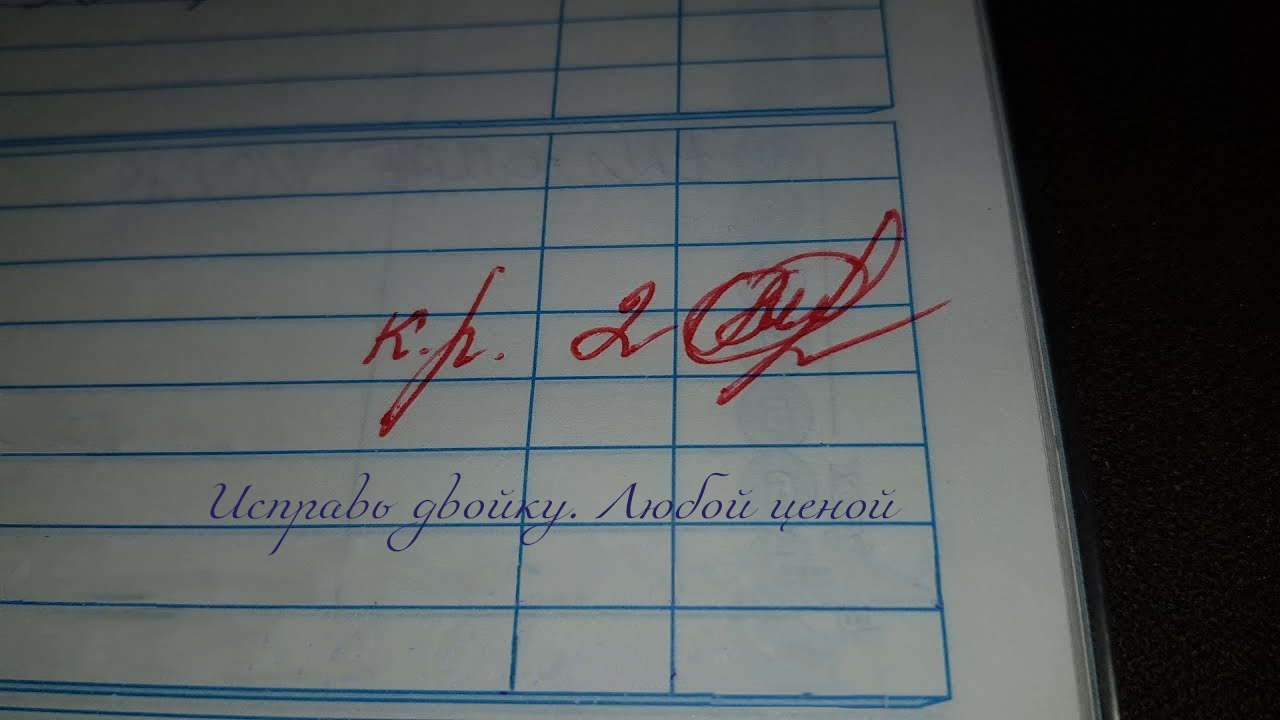 к.р. 2
Исправь двойку. Любой ценой